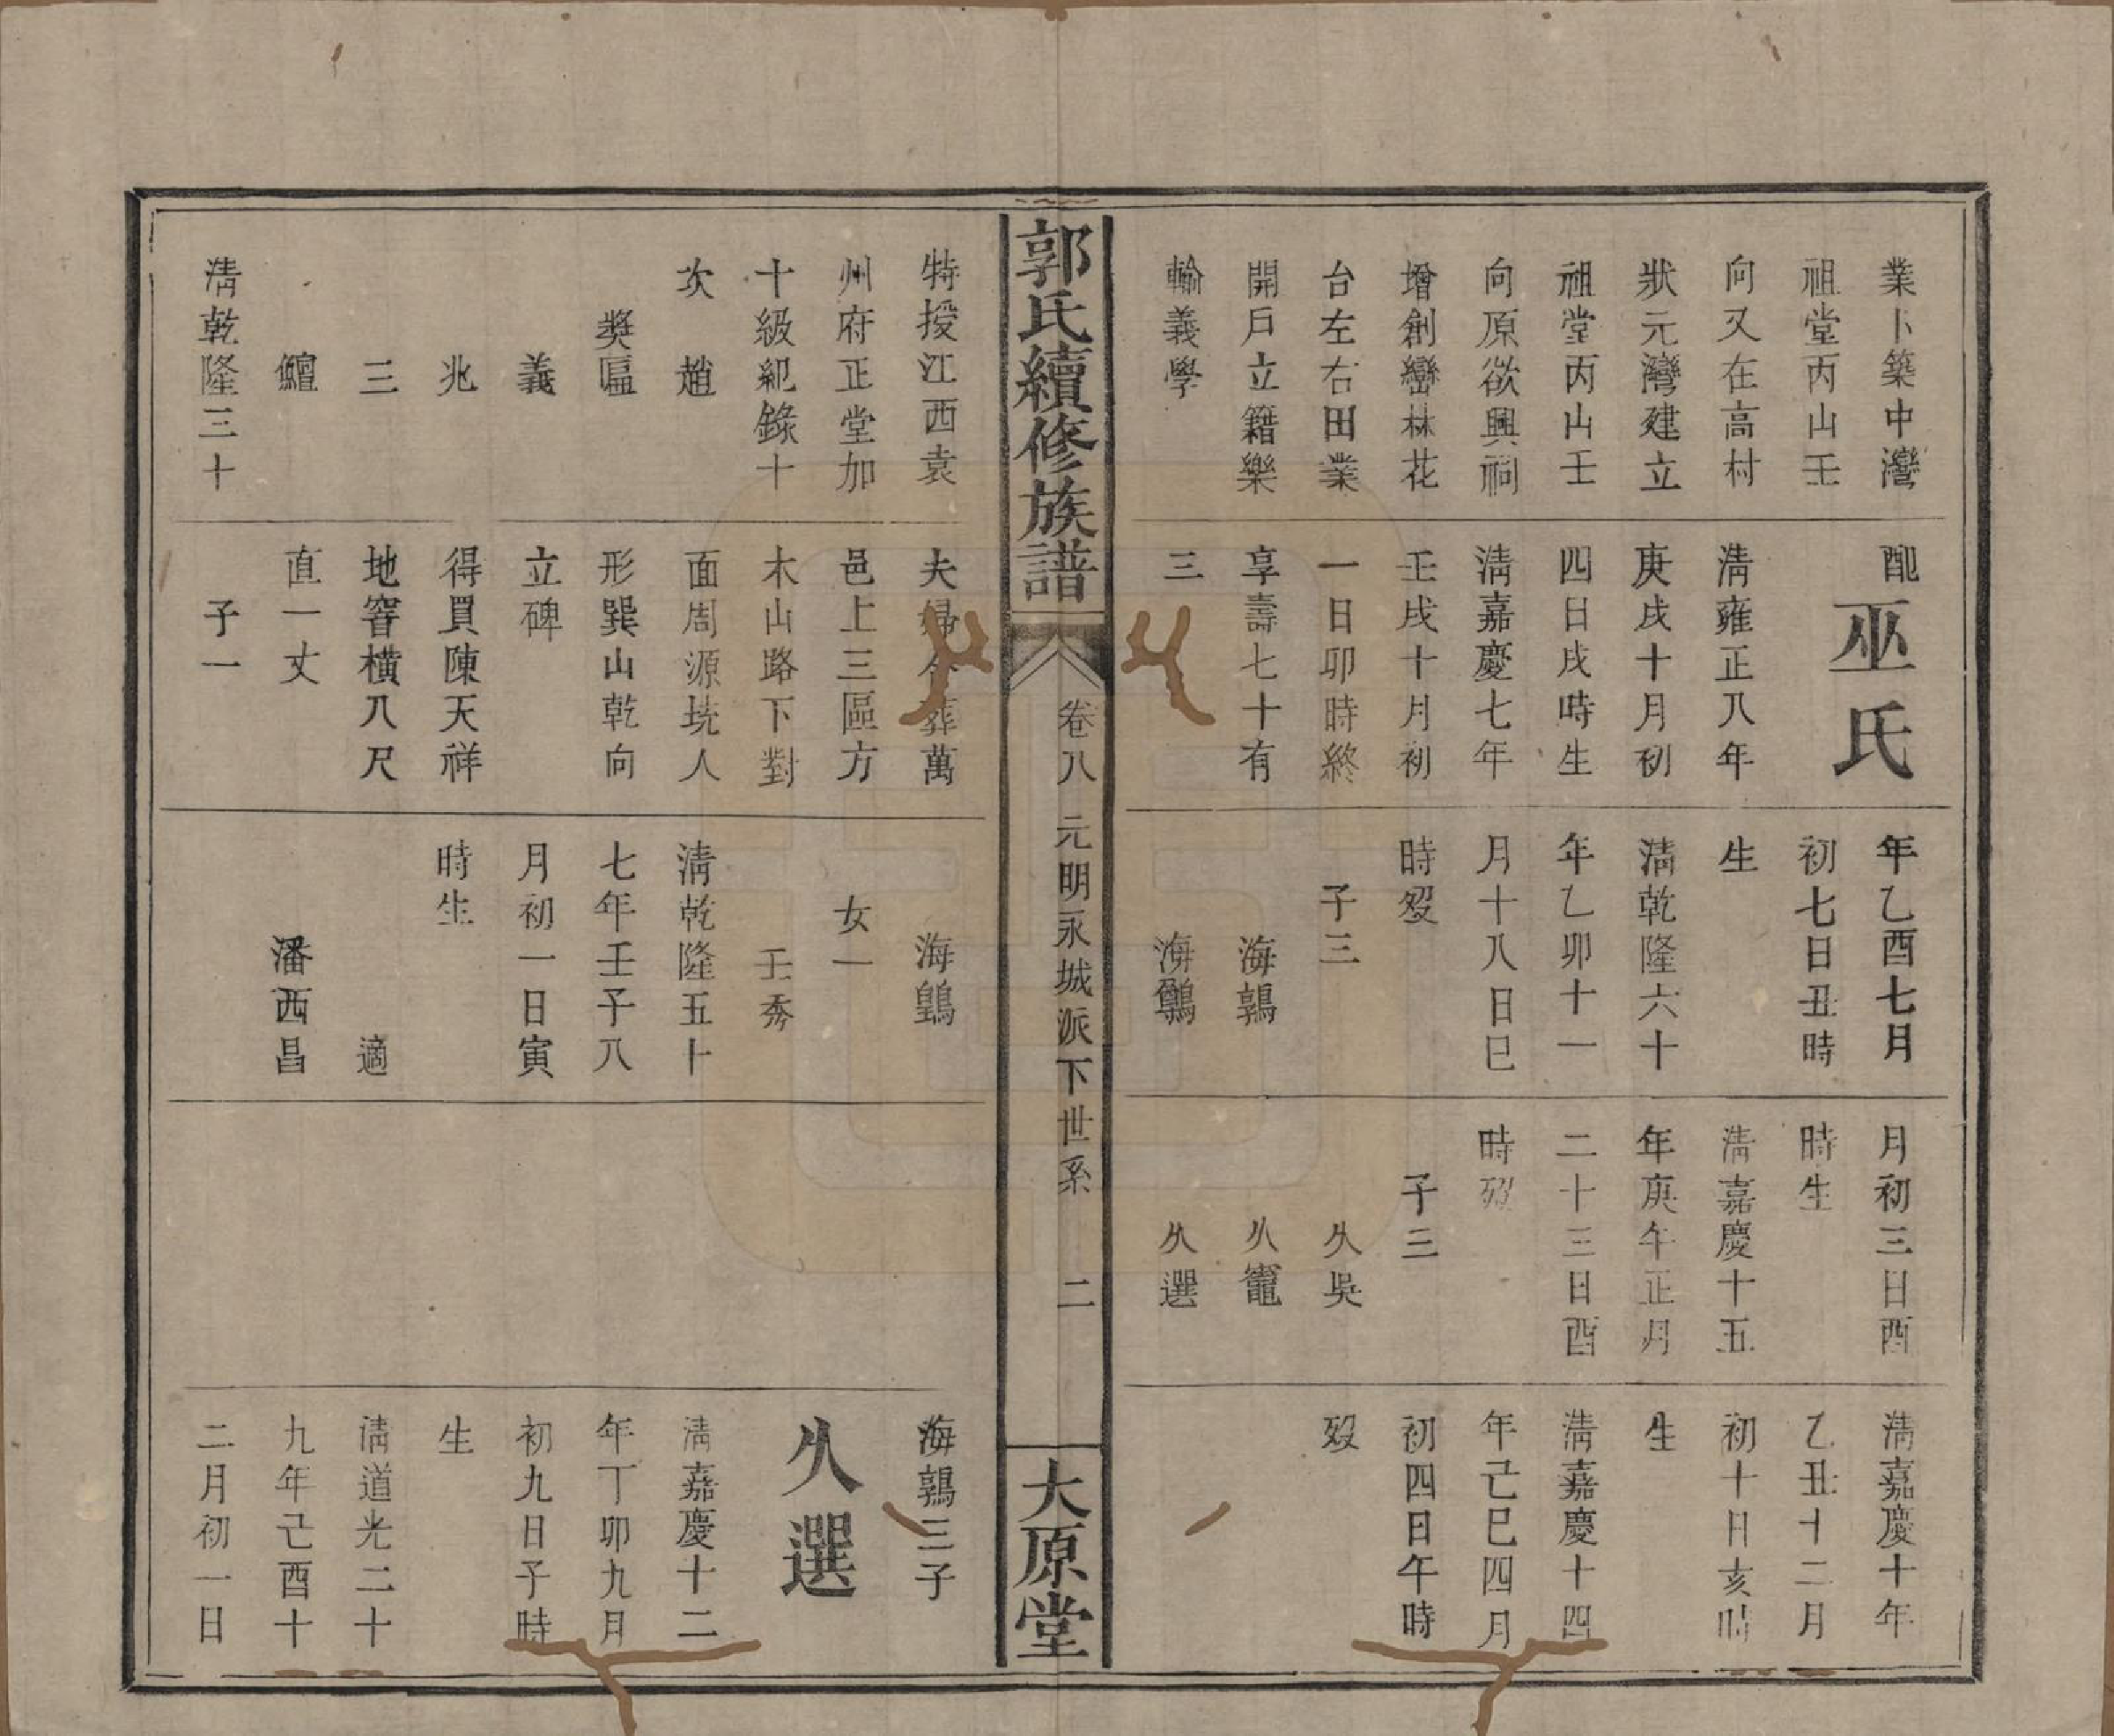 業卜築中灣
祖堂丙山壬
向又在高村
狀元灣建立
祖堂丙山壬
向原欲興祠
增創巒林花
台左右田業
開戶立籍樂
輸義學
配
巫氏
清雍正八年
庚戌十月初
四日戌時生
清嘉慶七年
壬戌十月初
一日卯時終
享壽七十有
三
年乙酉七月
初七日丑時
生
清乾隆六十
年乙卯十一
月十八日巳
時歿
子三
海鶉
海鸚
月初三日酉
時生
清嘉慶十五
年庚午正月
二十三日酉
時歿
子三
久吳
久竈
久選
清嘉慶十年
乙丑十二月
初十日亥時
生
清嘉慶十四
年己巳四月
初四日午時
歿
郭氏續修族譜
卷八
元明永城派下世系
二
大原堂
特授江西袁
州府正堂加
十級紀錄十
次趙
獎匾
義
兆
三
鱣
清乾隆三十
夫婦合葬萬
邑上三區方
木山路下對
面周源墝人
形巽山乾向
立碑
得買陳天祥
地窨橫八尺
直一丈
子一
海鍠
女一
壬秀
清乾隆五十
七年壬子八
月初一日寅
時生
適
潘西昌
海鶉三子
久選
清嘉慶十二
年丁卯九月
初九日子時
生
清道光二十
九年己酉十
二月初一日